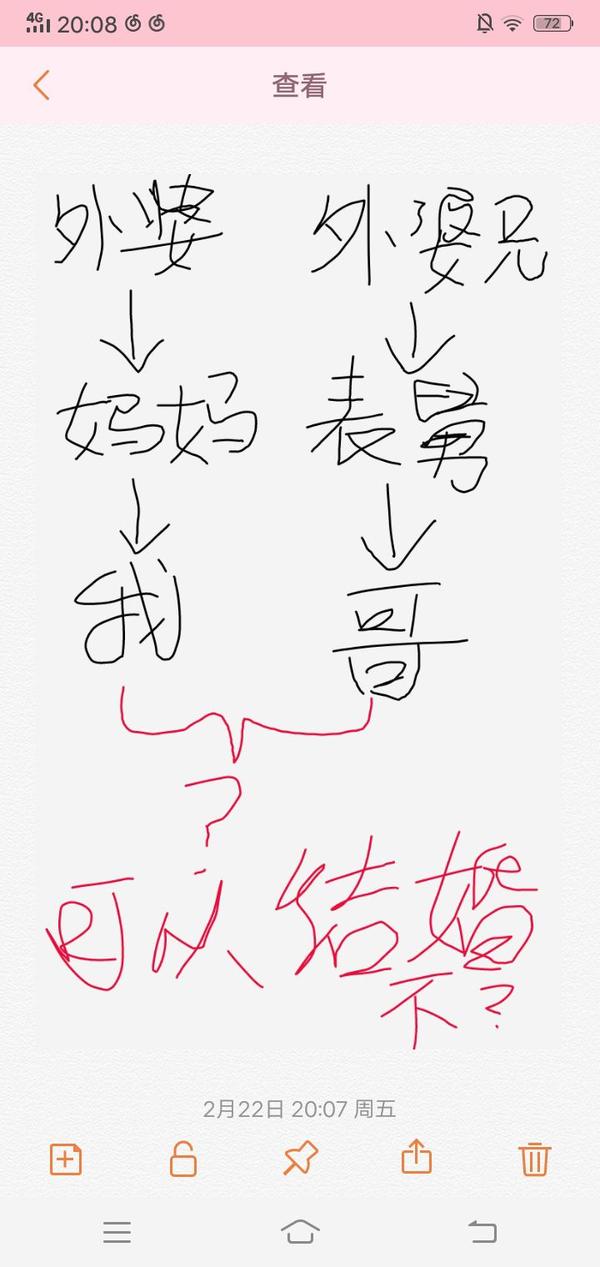 4G 20:08 72
查看
外婆 外婆兄
妈妈 表舅
我 哥
?
可以结婚
不?
2月22日 20:07 周五